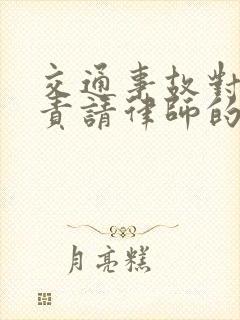 交通事故對
責請律師的
月亮糕